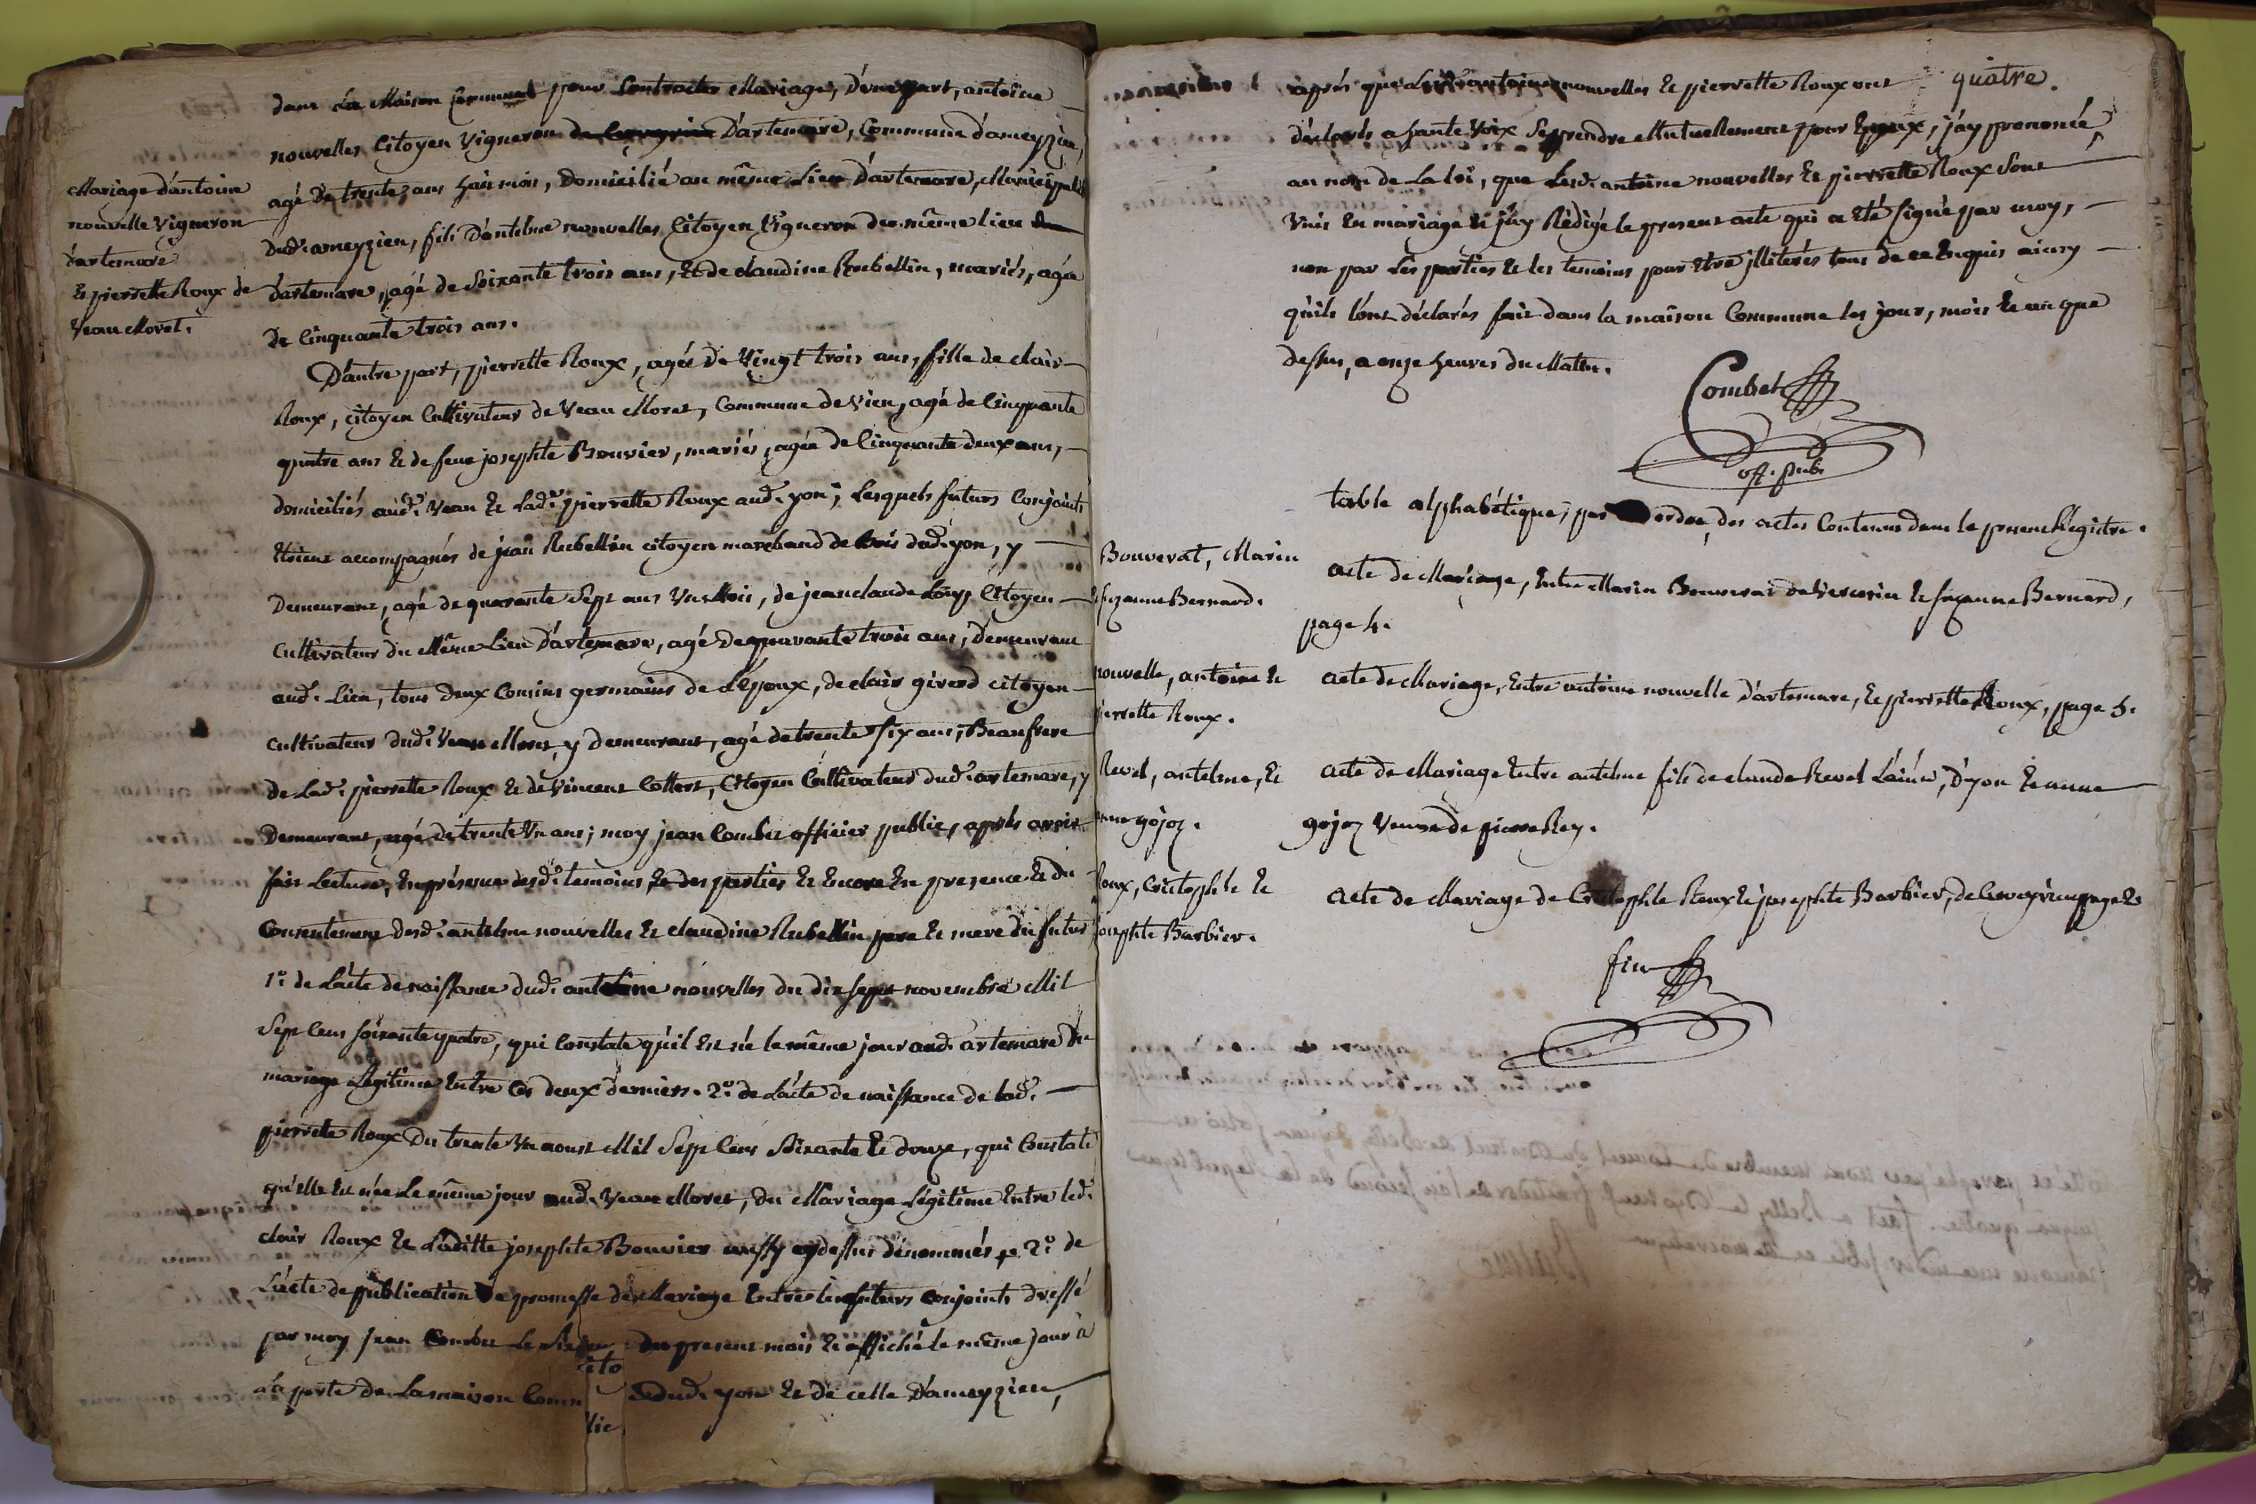 Mariage d'antoine
nouvelle vigneron
d'artemare
et pierrette Roux de
Veau Moret.
dans La Maison Commune pour Contracter Mariage, D'une part, antoine
nouvelles Citoyen Vigneron D'artemare, Commune d'ameyzieu,
agé de trente ans huit mois, Domicilié au même Lieu D'artemare, Municipalité
dud. ameyzieu, fils D'antelme nouvelles Citoyen Vigneron du même lieu
d'artemare, agé de Soixante trois ans, et de claudine Rubellin, mariés, agée
De Cinquante trois ans.
D'autre part, pierrette Roux, agée de Vingt trois ans, fille de clair
Roux, citoyen Cultivateur de Veau Moret, Commune de Vieu, agé de Cinquante
quatre ans et de feue josephte Bouvier, mariés, agée de Cinquante deux ans,
domiciliés aud. Veau et Lad. pierrette Roux aud. yon; Lesquels futurs Conjoints
étoient accompagnés de jean Rubellin citoyen marchand de bois dud. yon, y
Demeurant, agé de quarante Sept ans Un Mois, de jean claude Citoyen
Cultivateur du Même Lieu D'artemare, agé de quarante trois ans, demeurant
aud. Lieu, tous deux Cousins germains de L'Epoux, de clair girerd citoyen
cultivateur dud. Veau Moret y demeurant, agé de trente six ans, Beaufrere
de Lad. pierrette Roux et de Vincent Cultivateur dud. artemare, y
Demeurant, agé de trente Un ans; moy jean Combet officier public, après avoir
fait Lecture, En présence desd. temoins, et des parties et Encore En presence et du
Consentement desd. antelme nouvelles et claudine Rubellin pere et mere du futur
1.º de L'acte de naissance dud. nouvelles du dix sept novembre Mil
Sept Cent soixante quatre, qui Constate qu'il Est né le même jour aud. artemare du
mariage Légitime Entre Ces deux derniers. 2.º de L'acte de naissance de lad.
pierrette Roux Du trente Un aoust Mil Sept Cent Soixante et douze, qui Constate
qu'elle Est née Le même jour aud. Veau Moret, du Mariage Légitime Entre led.
clair Roux et Laditte josephte Bouvier aussy cy dessus dénommés 2.º de
L'acte de publication de promesse de Mariage Entre les futurs Conjoints dressé
par moy jean Combet Le du present mois et affiché le même jour à
la porte de La maison dud. yon et de celle D'ameyzieu,
quatre.
après que nouvelles et pierrette Roux ont
déclarés a haute Voix Se prendre Mutuellement pour Epoux, j'ay prononcé,
au nom de La loi, que Lesd. antoine nouvelles et pierrette Roux Sont
Unis En mariage et j'ay Rédigé le present acte qui a été Signé par moy,
non par Les parties et les temoins pour Etre illiterés tous de ce Enquis ainsy
qu'ils l'ont déclarés fait dans la maison Commune les jour, mois et an que
dessus, a onze heures du Matin.
Combet
off. pub.
table alphabétique, par ordre, des actes Contenus dans le present Régitre.
Bouverat, Marin
et suzanne Bernard.
acte de Mariage, Entre Marin Bouverat et suzanne Bernard,
page 4.
nouvelle, antoine et
pierrette Roux.
acte de Mariage, Entre antoine nouvelle d'artemare, et pierrette Roux, page 5.
Revel, antelme, et
anne gojoz.
acte de Mariage Entre antelme fils de claude Revel L'ainé, d'yon et anne
gojoz Veuve de pierre Rey.
Roux, Cristophle et
josephte Barbier.
acte de Mariage de Cristophle Roux et josephte Barbier, page 2.
fin